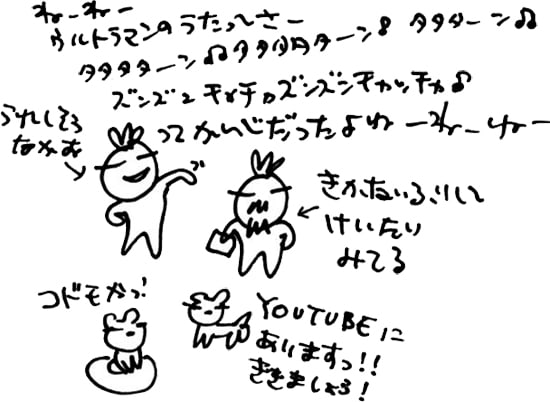 ねーねー
ウルトラマンのうたってさー
タタタターン♫タタタタターン♪タタターン♫
ズンズンチャチャズンズンチャッチャ♪
ってかんじだったよねーねーねー
うれしそうなかお
きかないふりしてけいたいみてる
コドモかっ!
YOUTUBEに
ありますっ!!
ききましょう!